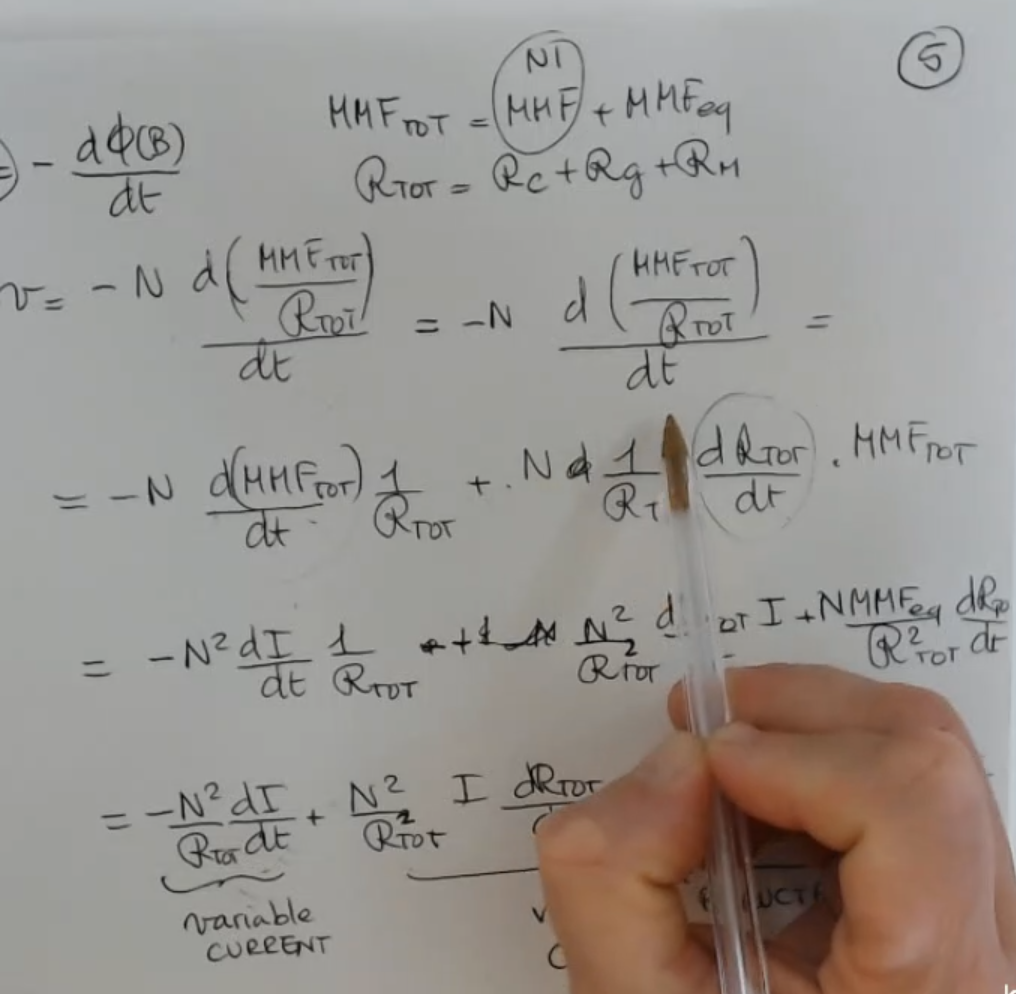 5
NI
MMF_TOT = MMF + MMF_eq
= - dΦ(B)/dt
R_TOT = R_C + R_g + R_M
v = -N d(MMF_TOT/R_TOT)/dt = -N d(MMF_TOT/R_TOT)/dt =
= -N d(MMF_TOT)/dt 1/R_TOT + . N 1/R_T dR_TOT/dt . MMF_TOT
= -N² dI/dt 1/R_TOT + N²/R²_TOT d OT I + N MMF_eq/R²_TOT dR_TO/dt
= -N²/R_TOT dI/dt + N²/R²_TOT I dR_TOT
variable
CURRENT